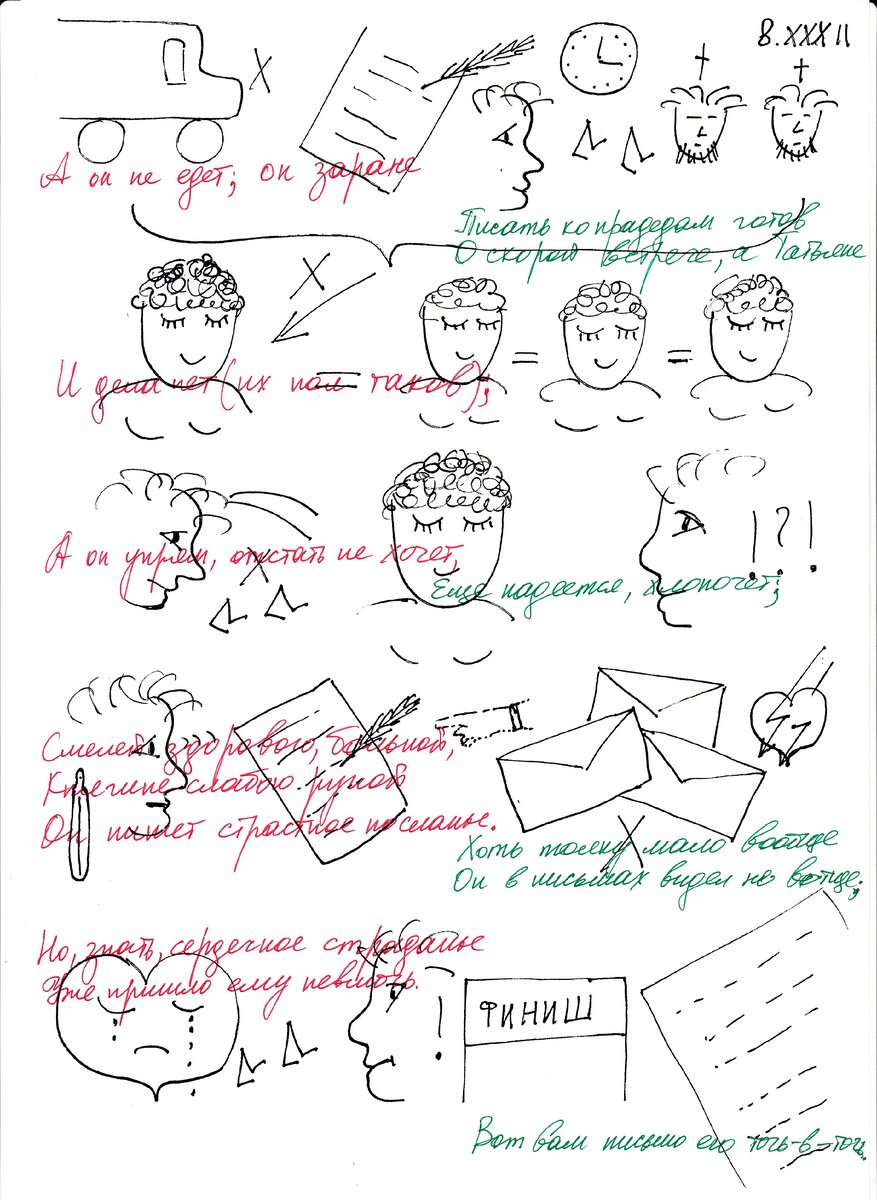 8.XXXII
А он не едет; он заране
Писать ко прадедам готов
О скорой встрече, а Татьяне
И дела нет (их пол таков);
А он упрям, отстать не хочет,
Еще надеется, хлопочет;
! ? !
Смелей здорового, больной,
Княгине слабою рукой
Он пишет страстное посланье.
Хоть толку мало вообще
Он в письмах видел не вотще;
Но, знать, сердечное страданье
Уже пришло ему невмочь.
!
ФИНИШ
Вот вам письмо его точь-в-точь.